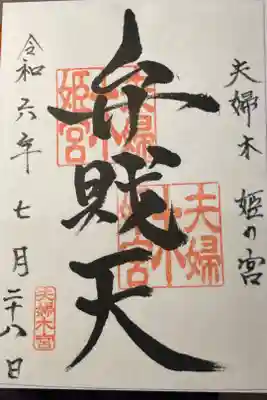 夫婦木 姫の宮
弁賎天
令和六年 七月 二十八日
夫婦木
姫宮
夫婦木
姫宮
夫婦木宮